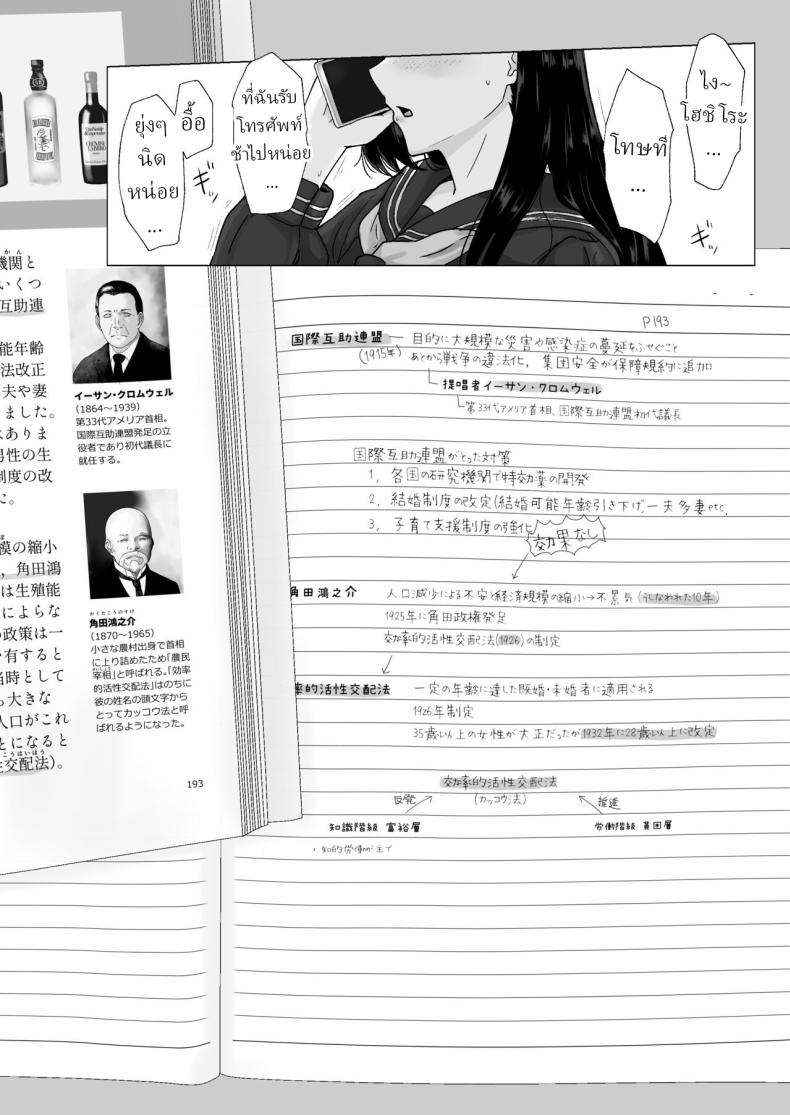 ไง~
โฮชิโระ
...
โทษที
...
ที่ฉันรับ
โทรศัพท์
ช้าไปหน่อย
...
อื้อ
ยุ่งๆ
นิด
หน่อย
...
ギッ
ギッ
かん
機関と
いくつ
互助連
能年齢
法改正
夫や妻
ました。
はありま
男性の生
制度の改
た。
模の縮小
、角田鴻
は生殖能
によらな
の政策は一
を有すると
当時として
も大きな
人口がこれ
とになると
こうはいほう
生交配法)。
イーサン・クロムウェル
(1864〜1939)
第33代アメリア首相。
国際互助連盟発足の立
役者であり初代議長に
就任する。
かくたこうのすけ
角田鴻之介
(1870〜1965)
小さな農村出身で首相
に上り詰めたため「農民
さいしょう
宰相」と呼ばれる。「効率
的活性交配法」はのちに
彼の姓名の頭文字から
とってカッコウ法と呼
ばれるようになった。
193
P193
国際互助連盟 — 目的に大規模な災害や感染症の蔓延をふせぐこと
(1915年) あとから戦争の違法化, 集団安全が保障規約に追加
提唱者イーサン・クロムウェル
第33代アメリア首相、国際互助連盟初代議長
国際互助連盟がとった対策
1, 各国の研究機関で特効薬の開発
2, 結婚制度の改定(結婚可能年齢引き下げ,一夫多妻etc,
3, 子育て支援制度の強化
効果なし
角田鴻之介 人口減少による不安と経済規模の縮小→不景気(うしなわれた10年)
1925年に角田政権発足
効率的活性交配法(1926)の制定
率的活性交配法 一定の年齢に達した既婚・未婚者に適用される
1926年制定
35歳以上の女性が大正だったが1932年に28歳以上に改定
効率的活性交配法
反発 (カッコウ法) 推進
知識階級 富裕層 労働階級 貧困層
・知的労働が主で